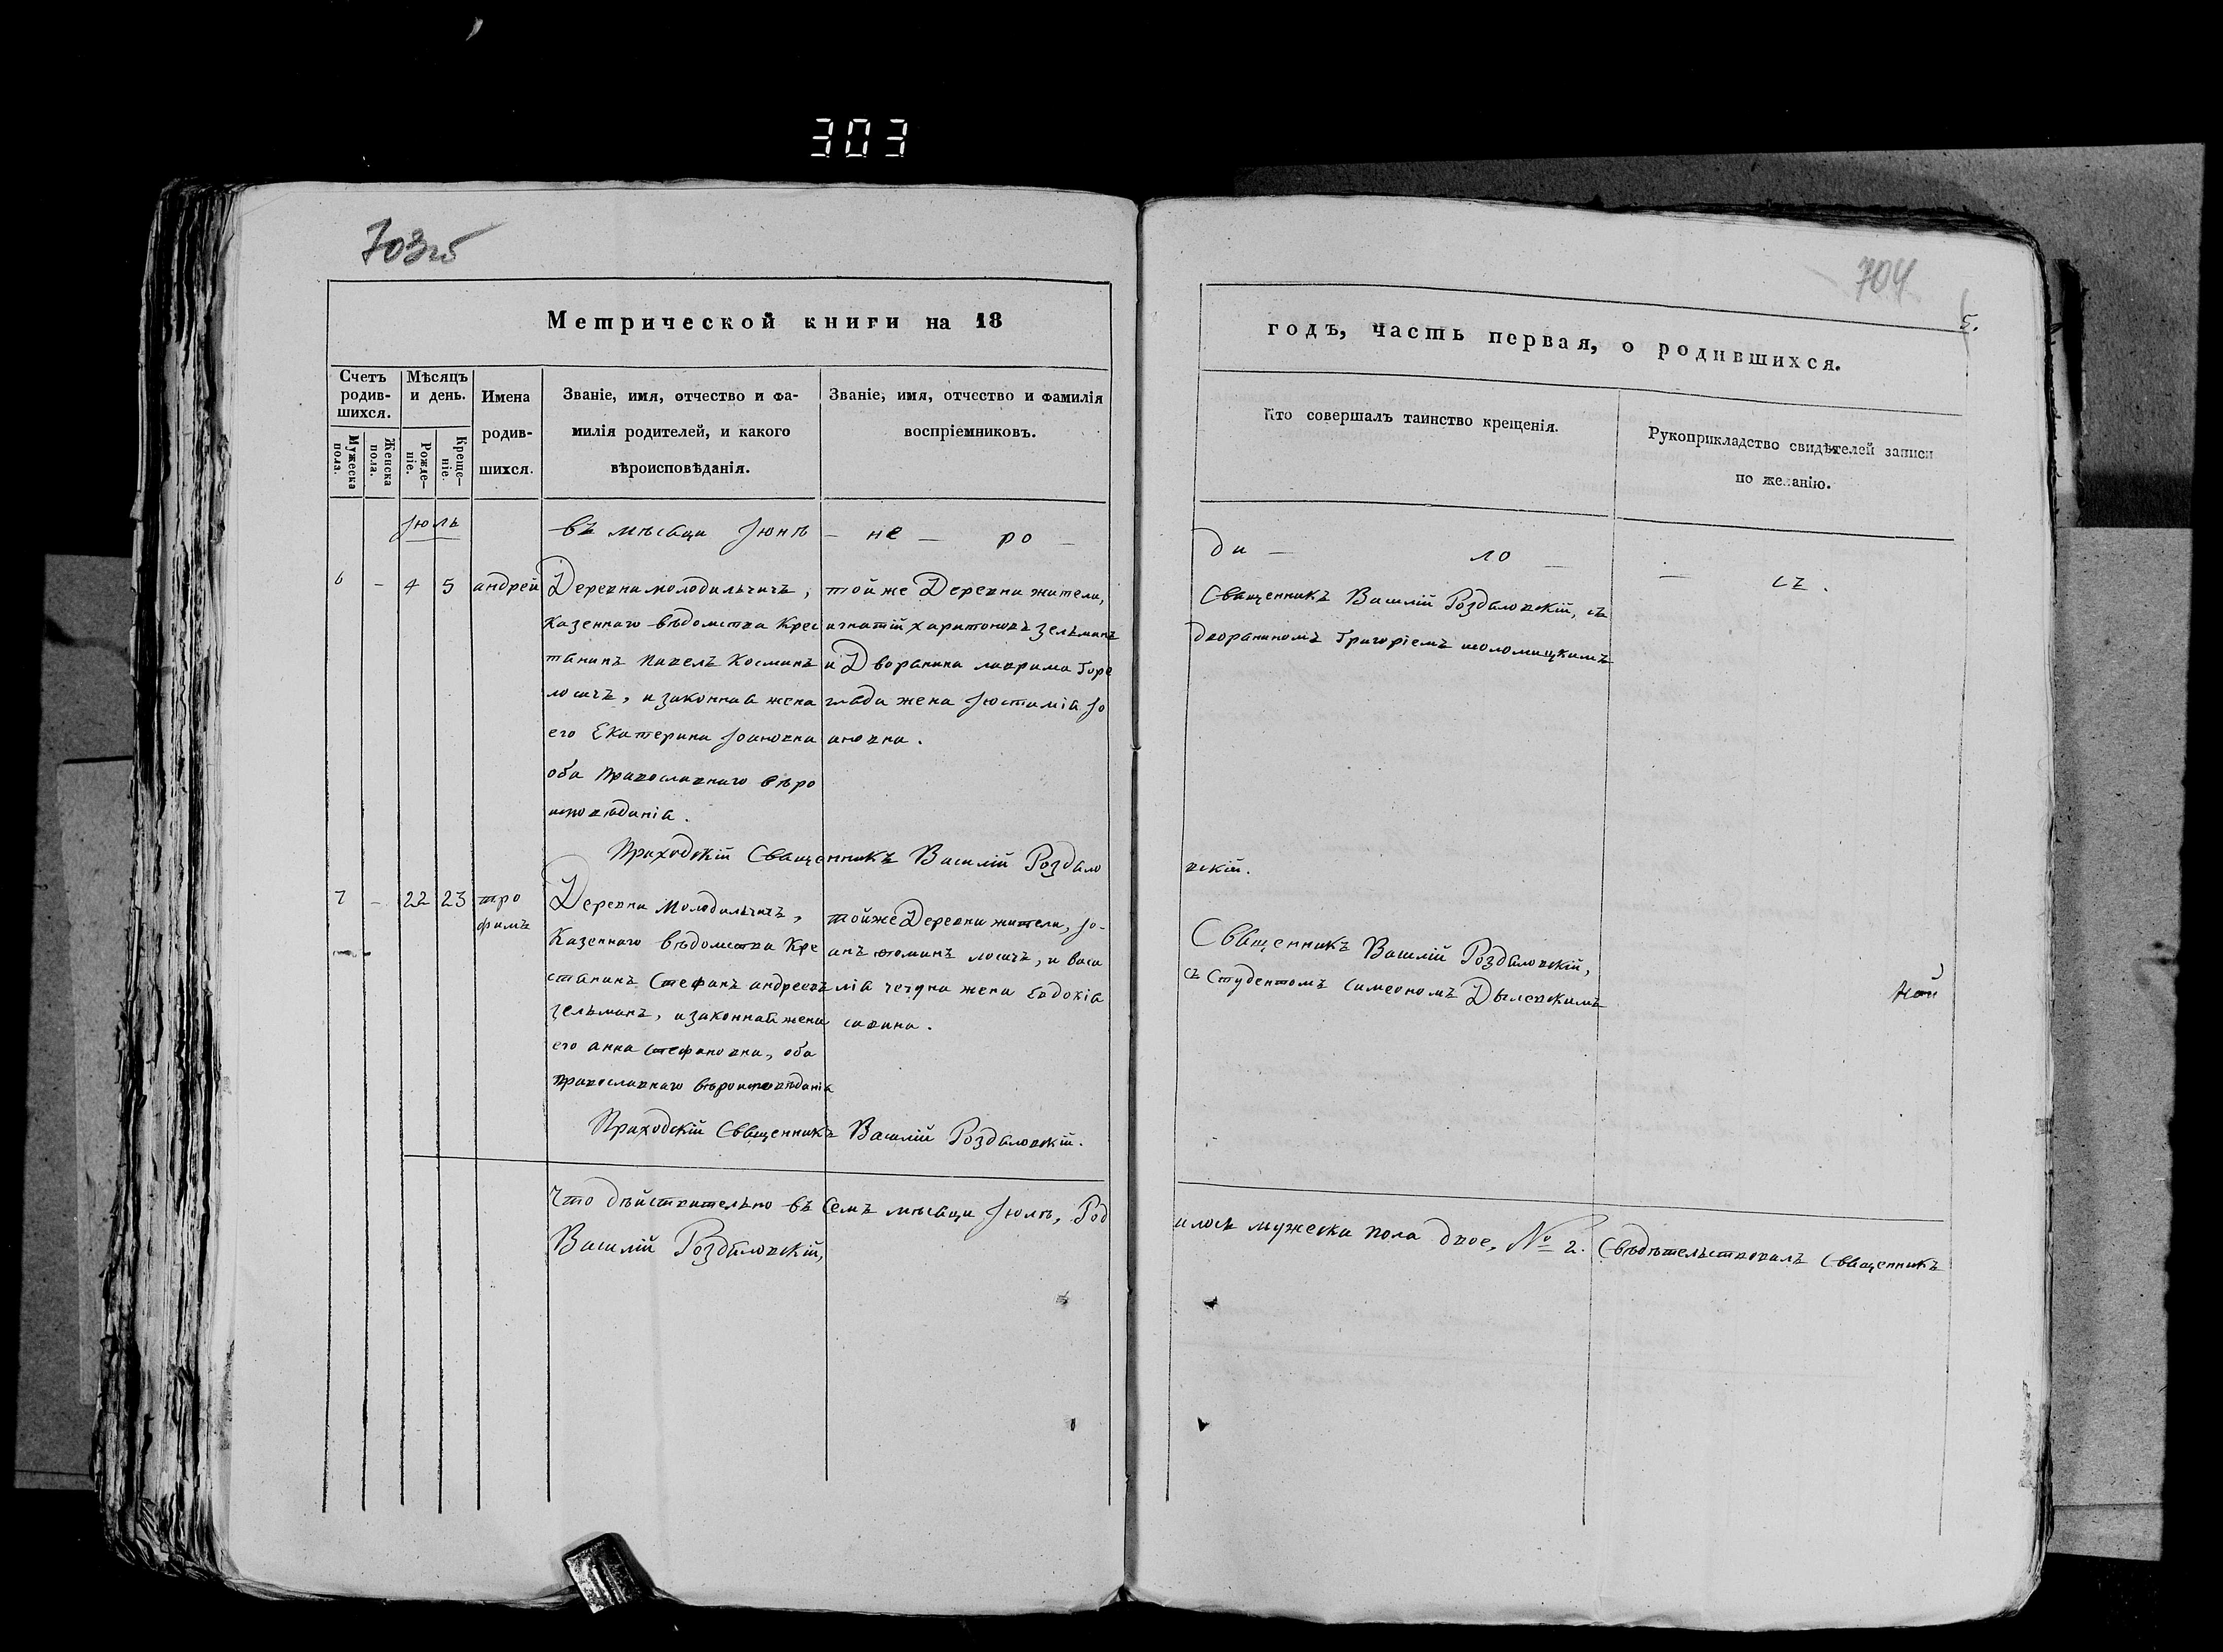 303
703об
Метрической книги на 18
Счетъ родив-шихся.
Мужеска пола.
Женска пола.
Мѣсяцъ и день.
Рожде-ніе.
Креще-ніе.
Имена родив-шихся.
Званіе, имя, отчество и фа-
милія родителей, и какого
вѣроисповѣданія.
Званіе, имя, отчество и фамилія
воспріемниковъ.
Іюль
въ мѣсяци Іюнѣ — не — ро —
6 – 4 5 андрей
Деревни молодильчичъ,
Казеннаго вѣдомства Крес
тянинъ павелъ Косминъ
лосичъ, и законная жена
его Екатерина Іоановна
оба православнаго вѣро
исповѣданія.
тойже Деревни жители,
игнатій харитоновъ зельманъ
и Дворянина лаврима Горе
гляда жена Іюстимія Іо
ановна.
Приходскій Священникъ Василій Роздяло
7 – 22 23 тро
фимъ
Деревни Молодильчичъ,
Казеннаго вѣдомства Кре
стянинъ Стефанъ андреевъ
зельманъ, и законная жена
его анна Стефановна, оба
православнаго вѣроисповѣданія
тойже Деревни жители, Іо-
анъ фоминъ лосичъ, и васи
лія чечуна жена Евдокія
савина.
Приходскій Священникъ Василій Роздяловскій.
Что дѣйствительно въ Семъ мѣсяци Іюлѣ, Род
Василій Роздяловскій,
704
5.
годъ, часть первая, о родившихся.
Кто совершалъ таинство крещенія.
Рукоприкладство свидѣтелей записи
по желанію.
ди — ло — — сь.
Священникъ Василій Роздяловскій, съ
дворяниномъ Григоріемъ шоломицкимъ
вскій.
Священникъ Василій Роздяловскій,
съ Студентомъ Симеономъ Дылевскимъ
илось мужеска пола двое, № 2. Свѣдѣтельствовалъ Священникъ